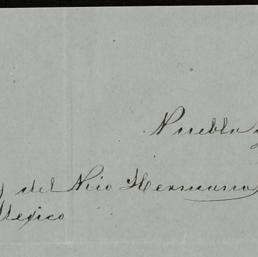 Puebla
del Nrio Hermano
Mexico